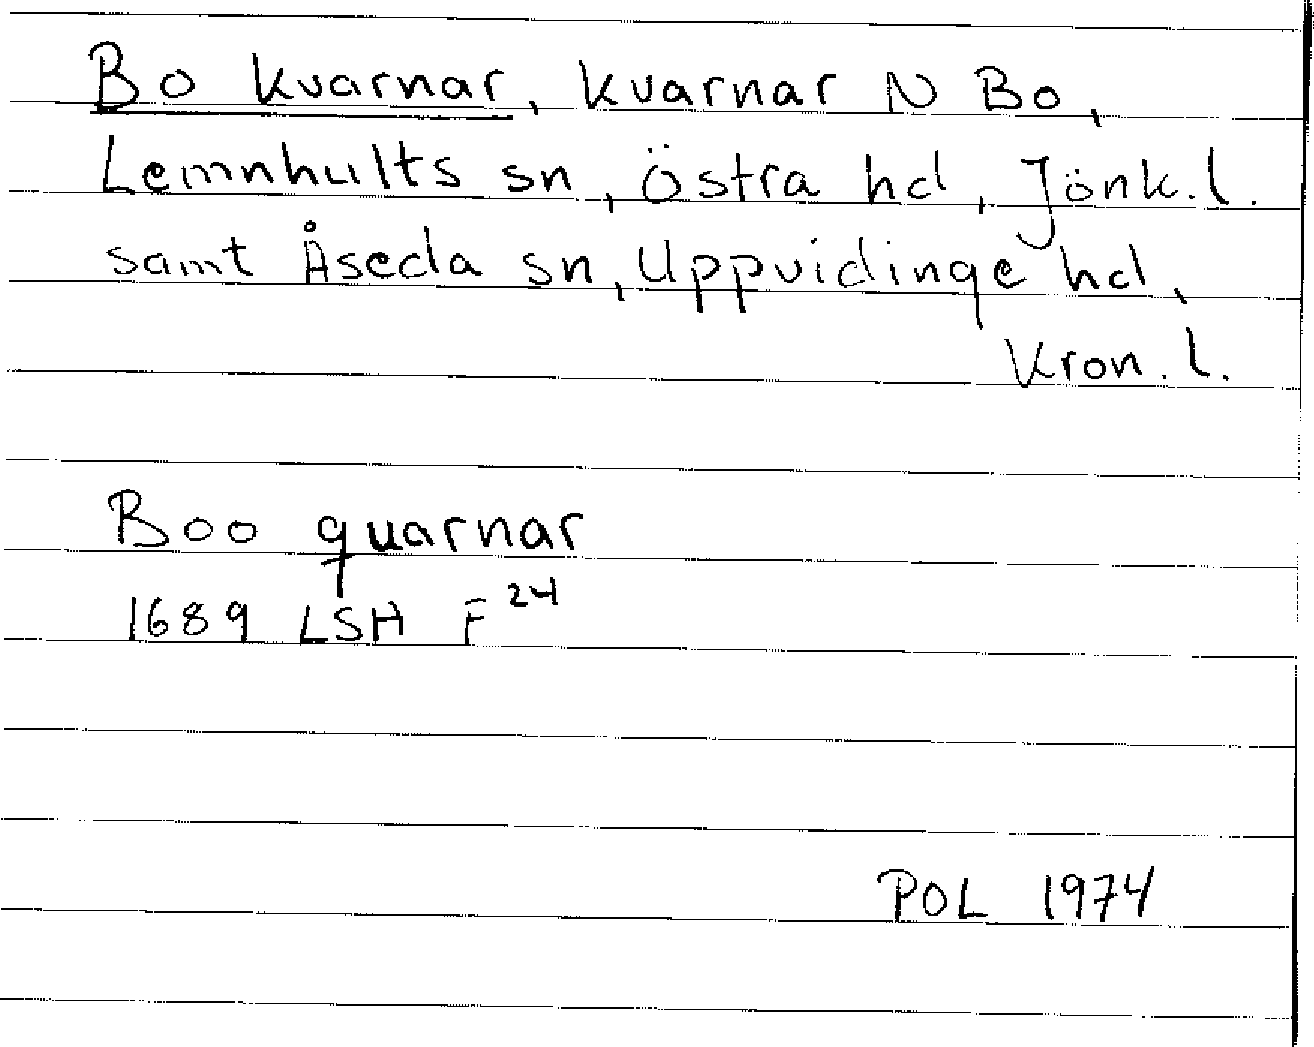 Bo kvarnar, kvarnar N Bo,
Lemnhults sn, Östra hd, Jönk. l.
samt Åseda sn, Uppvidinge hd,
Kron. l.
Boo quarnar
1689 LSH F 24
POL 1974